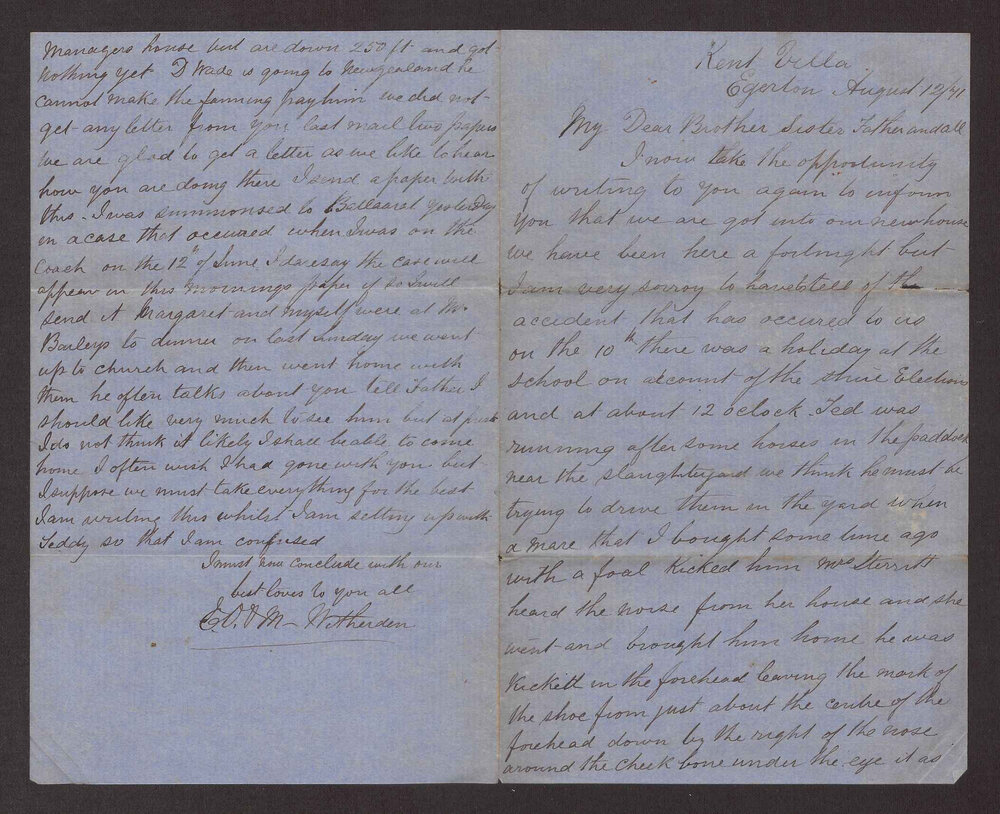 Kent Villa
Egerton August 12/71
My Dear Brother Sister Father and all
I now take the opportunity
of writing to you again to inform
you that we are got into our new house
we have been here a fortnight but
I am very sorroy to have to tell of the
accident that has occured to us
on the 10th there was a holiday at the
school on account of the shire Elections
and at about 12 oclock Ted was
running after some horses in the paddock
near the slaughteryard we think he must be
trying to drive them in the yard when
a mare that I bought some time ago
with a foal kicked him Mrs Sterritt
heard the noise from her house and she
went and brought him home he was
kickett in the forehead leaving the mark of
the shoe from just about the centre of the
forehead down by the right of the nose
around the cheek bone under the eye it as
Managers house but are down 250 ft and got
nothing yet D Wade is going to Newzealand he
cannot make the farming pay him we did not
get any letter from you last mail two papers
we are glad to get a letter as we like to hear
how you are doing there I send a paper with
this. I was summonsed to Ballaarat yesterday
in a case that occured when I was on the
Coach on the 12th of June I daresay the case will
appear in this mornings paper if so I will
send it Margaret and myself were at Mr
Baileys to dinner on last sunday we went
up to church and then went home with
them he often talks about you tell Father I
should like very much to see him but at
I do not think it likely I shall be able to come
home I often wish I had gone with you but
I suppose we must take everything for the best
I am writing this whilst I am setting up with
Teddy so that I am confused
I must conclude with our
best loves to you all
M Witherden